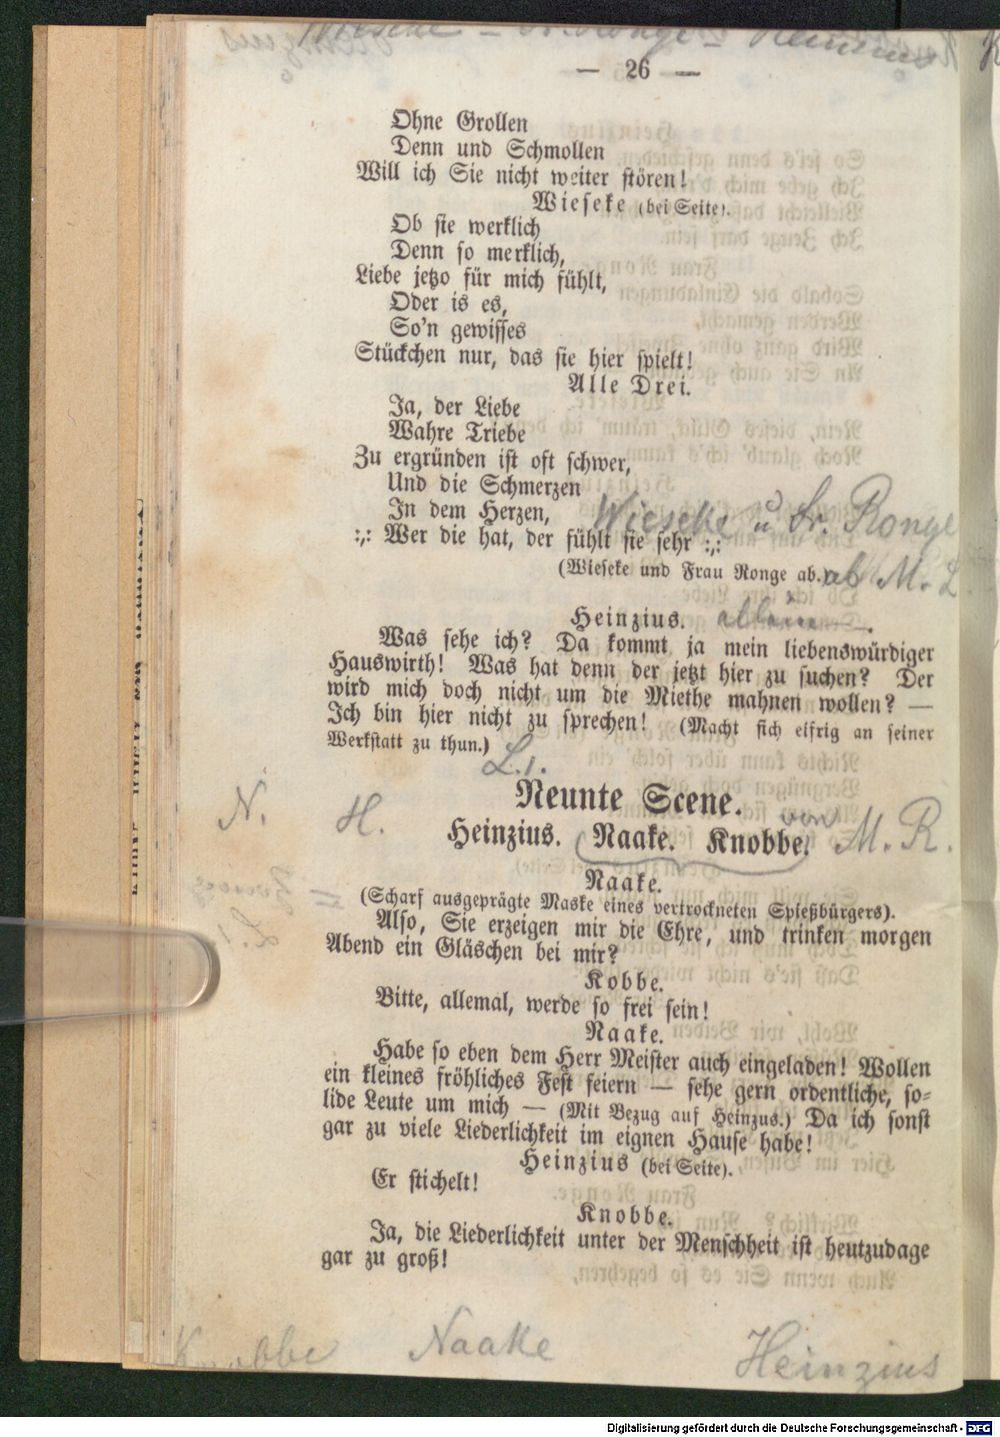 Wieseke – Fr. Ronge – Heinzius
— 26 —
Ohne Grollen
Denn und Schmollen
Will ich Sie nicht weiter stören!
Wieseke (bei Seite).
Ob sie werklich
Denn so merklich,
Liebe jetzo für mich fühlt,
Oder is es,
So'n gewisses
Stückchen nur, das sie hier spielt!
Alle Drei.
Ja, der Liebe
Wahre Triebe
Zu ergründen ist oft schwer,
Und die Schmerzen
In dem Herzen,
Wieseke u Fr. Ronge
:,: Wer die hat, der fühlt sie sehr :,:
(Wieseke und Frau Ronge ab.) ab M. L
Heinzius. allein
Was sehe ich? Da kommt ja mein liebenswürdiger
Hauswirth! Was hat denn der jetzt hier zu suchen? Der
wird mich doch nicht um die Miethe mahnen wollen? —
Ich bin hier nicht zu sprechen! (Macht sich eifrig an seiner
Werkstatt zu thun.)
L. 1.
Neunte Scene.
N. H.
Heinzius. Naake. Knobbe. von M. R.
Naake.
(Scharf ausgeprägte Maske eines vertrockneten Spießbürgers).
Also, Sie erzeigen mir die Ehre, und trinken morgen
Abend ein Gläschen bei mir?
Kobbe.
Bitte, allemal, werde so frei sein!
Naake.
Habe so eben dem Herr Meister auch eingeladen! Wollen
ein kleines fröhliches Fest feiern — sehe gern ordentliche, so-
lide Leute um mich — (Mit Bezug auf Heinzus.) Da ich sonst
gar zu viele Liederlichkeit im eignen Hause habe!
Heinzius (bei Seite).
Er stichelt!
Knobbe.
Ja, die Liederlichkeit unter der Menschheit ist heutzudage
gar zu groß!
Knobbe Naake Heinzius
Digitalisierung gefördert durch die Deutsche Forschungsgemeinschaft - DFG